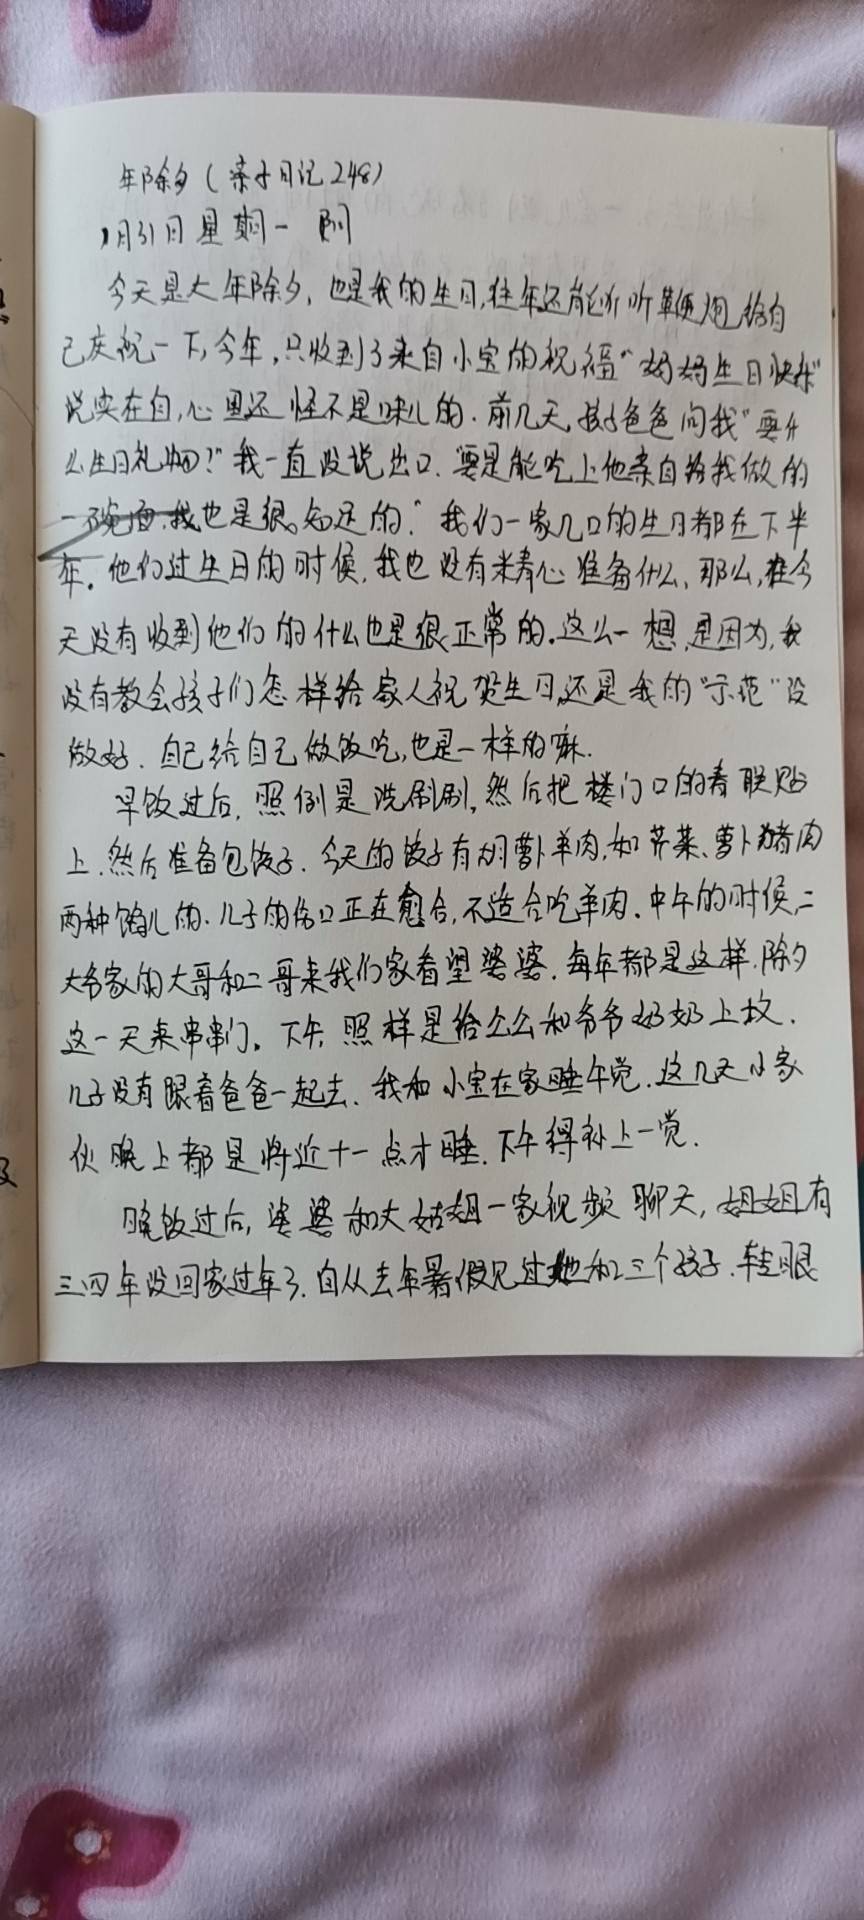 年除夕（亲子日记248）
1月31日 星期一 阴
今天是大年除夕，也是我的生日，往年还能听听鞭炮，给自
己庆祝一下，今年，只收到了来自小宝的祝福“妈妈生日快乐”
说实在自，心里还怪不是味儿的．前几天，孩子爸爸问我“要什
么生日礼物？”我一直没说出口．要是能吃上他亲自给我做的
一碗面．我也是很知足的．”我们一家几口的生日都在下半
年．他们过生日的时候，我也没有精心准备什么、那么，在今
天没有收到他们的什么也是很正常的．这么一想，是因为，我
没有教会孩子们怎样给家人祝贺生日，还是我的“示范”没
做好．自己给自己做饭吃，也是一样的嘛．
早饭过后，照例是洗刷刷，然后把楼门口的春联贴
上．然后准备包饺子．今天的饺子有胡萝卜羊肉，和芹菜、萝卜猪肉
两种馅儿的．儿子的伤口正在愈合，不适合吃羊肉．中午的时候，二
大爷家的大哥和二哥来我们家看望婆婆．每年都是这样．除夕
这一天来串串门．下午，照样是给公公和爷爷奶奶上坟．
儿子没有跟着爸爸一起去．我和小宝在家睡午觉．这几天小家
伙晚上都是将近十一点才睡．下午得补上一觉．
晚饭过后，婆婆和大姑姐一家视频聊天，姐姐有
三四年没回家过年了．自从去年暑假见过她和三个孩子．转眼